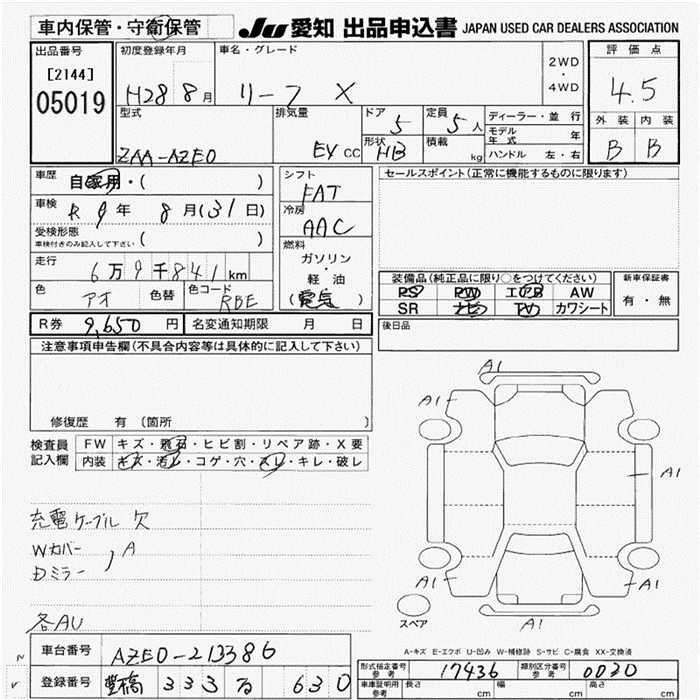 車内保管・守衛保管
JU 愛知 出品申込書 JAPAN USED CAR DEALERS ASSOCIATION
出品番号 初度登録年月 車名・グレード 2WD・4WD 評価点
[2144]
05019 H28 8月 リーフ X 4.5
型式 排気量 ドア 5 定員 5人 ディーラー・並行 外装 内装
モデル年式 年
ZAA-AZE0 EV CC 形状 HB 積載 kg ハンドル 左・右 B B
車歴 自家用・( ) シフト セールスポイント(正常に機能するものに限ります)
FAT
車検 R 9年 8月(31日) 冷房
AAC
受検形態
車検付きのみ記入して下さい ( ) 燃料
走行 ガソリン・軽油
6万9千841km (電気) 装備品(純正品に限り○をつけてください) 新車保証書
色 アオ 色替 色コード RBE PS PW エアB AW 有・無
SR ナビ TV カワシート
R券 9,650円 名変通知期限 月 日 後日品
注意事項申告欄(不具合内容等は具体的に記入して下さい)
A1
A1 A1
修復歴 有 〔箇所
検査員 FW キズ・飛石・ヒビ割・リペア跡・X要
記入欄 内装 キズ・汚レ・コゲ・穴・スレ・キレ・破レ
A1
充電ケーブル 欠
Wカバー
Dミラー , A
A1 A1
スペア
各AU A1
A-キズ E-エクボ U-凹み W-補修跡 S-サビ C-腐食 XX-交換済
車台番号 AZE0-213386
形式指定番号 参考 17436 類別区分番号 参考 0030
登録番号 豊橋 333 る 630
車庫証明用 参考 長さ cm 幅 cm 高さ cm